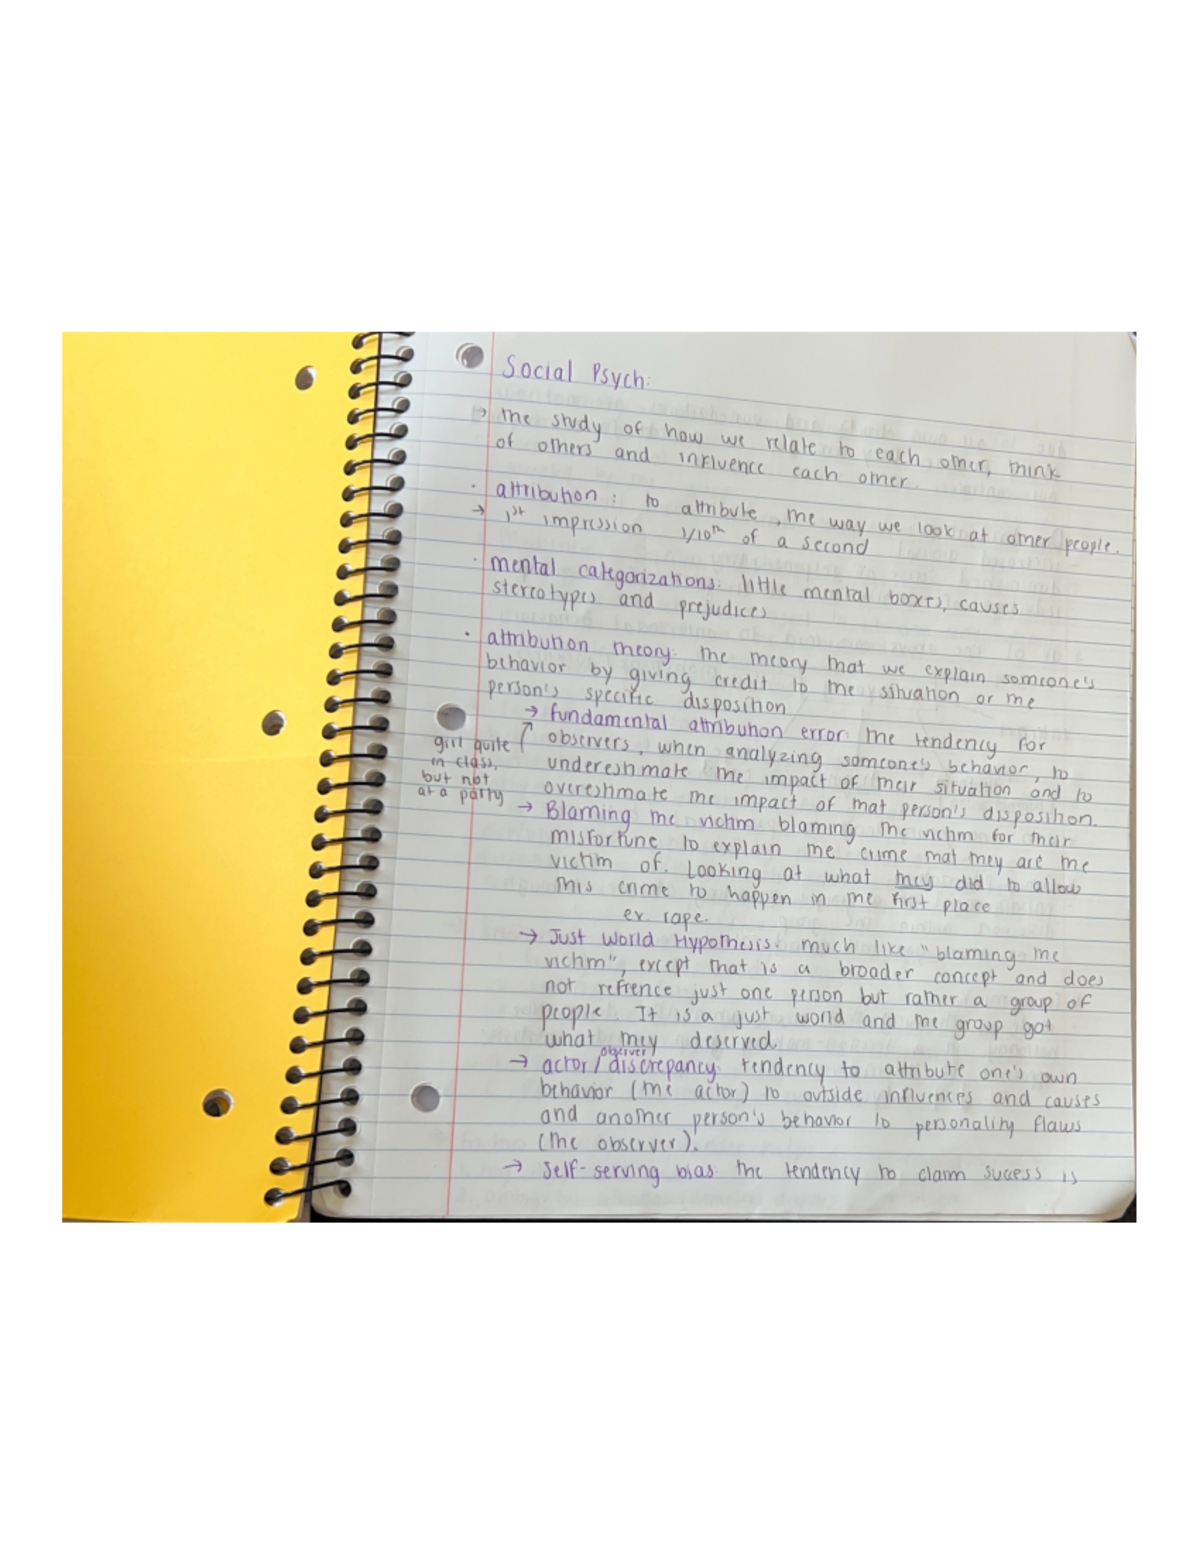 Social Psych:
→ the study of how we relate to each other, think
of others and influence each other.
· attribution : to attribute, the way we look at other people.
→ 1st impression 1/10th of a second
· mental categorizations: little mental boxes, causes
stereotypes and prejudices
· attribution theory: the theory that we explain someone's
behavior by giving credit to the situation or the
person's specific disposition
→ fundamental attribution error: the tendency for
observers, when analyzing someone's behavior, to
underestimate the impact of their situation and to
overestimate the impact of that person's disposition.
girl quite
in class,
but not
at a party
→ Blaming the victim: blaming the victim for their
misfortune to explain the crime that they are the
victim of. Looking at what they did to allow
this crime to happen in the first place
ex. rape.
→ Just World Hypothesis: much like "blaming the
victim", except that is a broader concept and does
not refrence just one person but rather a group of
people. It is a just world and the group got
what they deserved.
→ actor/observer discrepancy: tendency to attribute one's own
behavior (the actor) to outside influences and causes
and another person's behavior to personality flaws
(the observer).
→ Self-serving bias: the tendency to claim sucess is